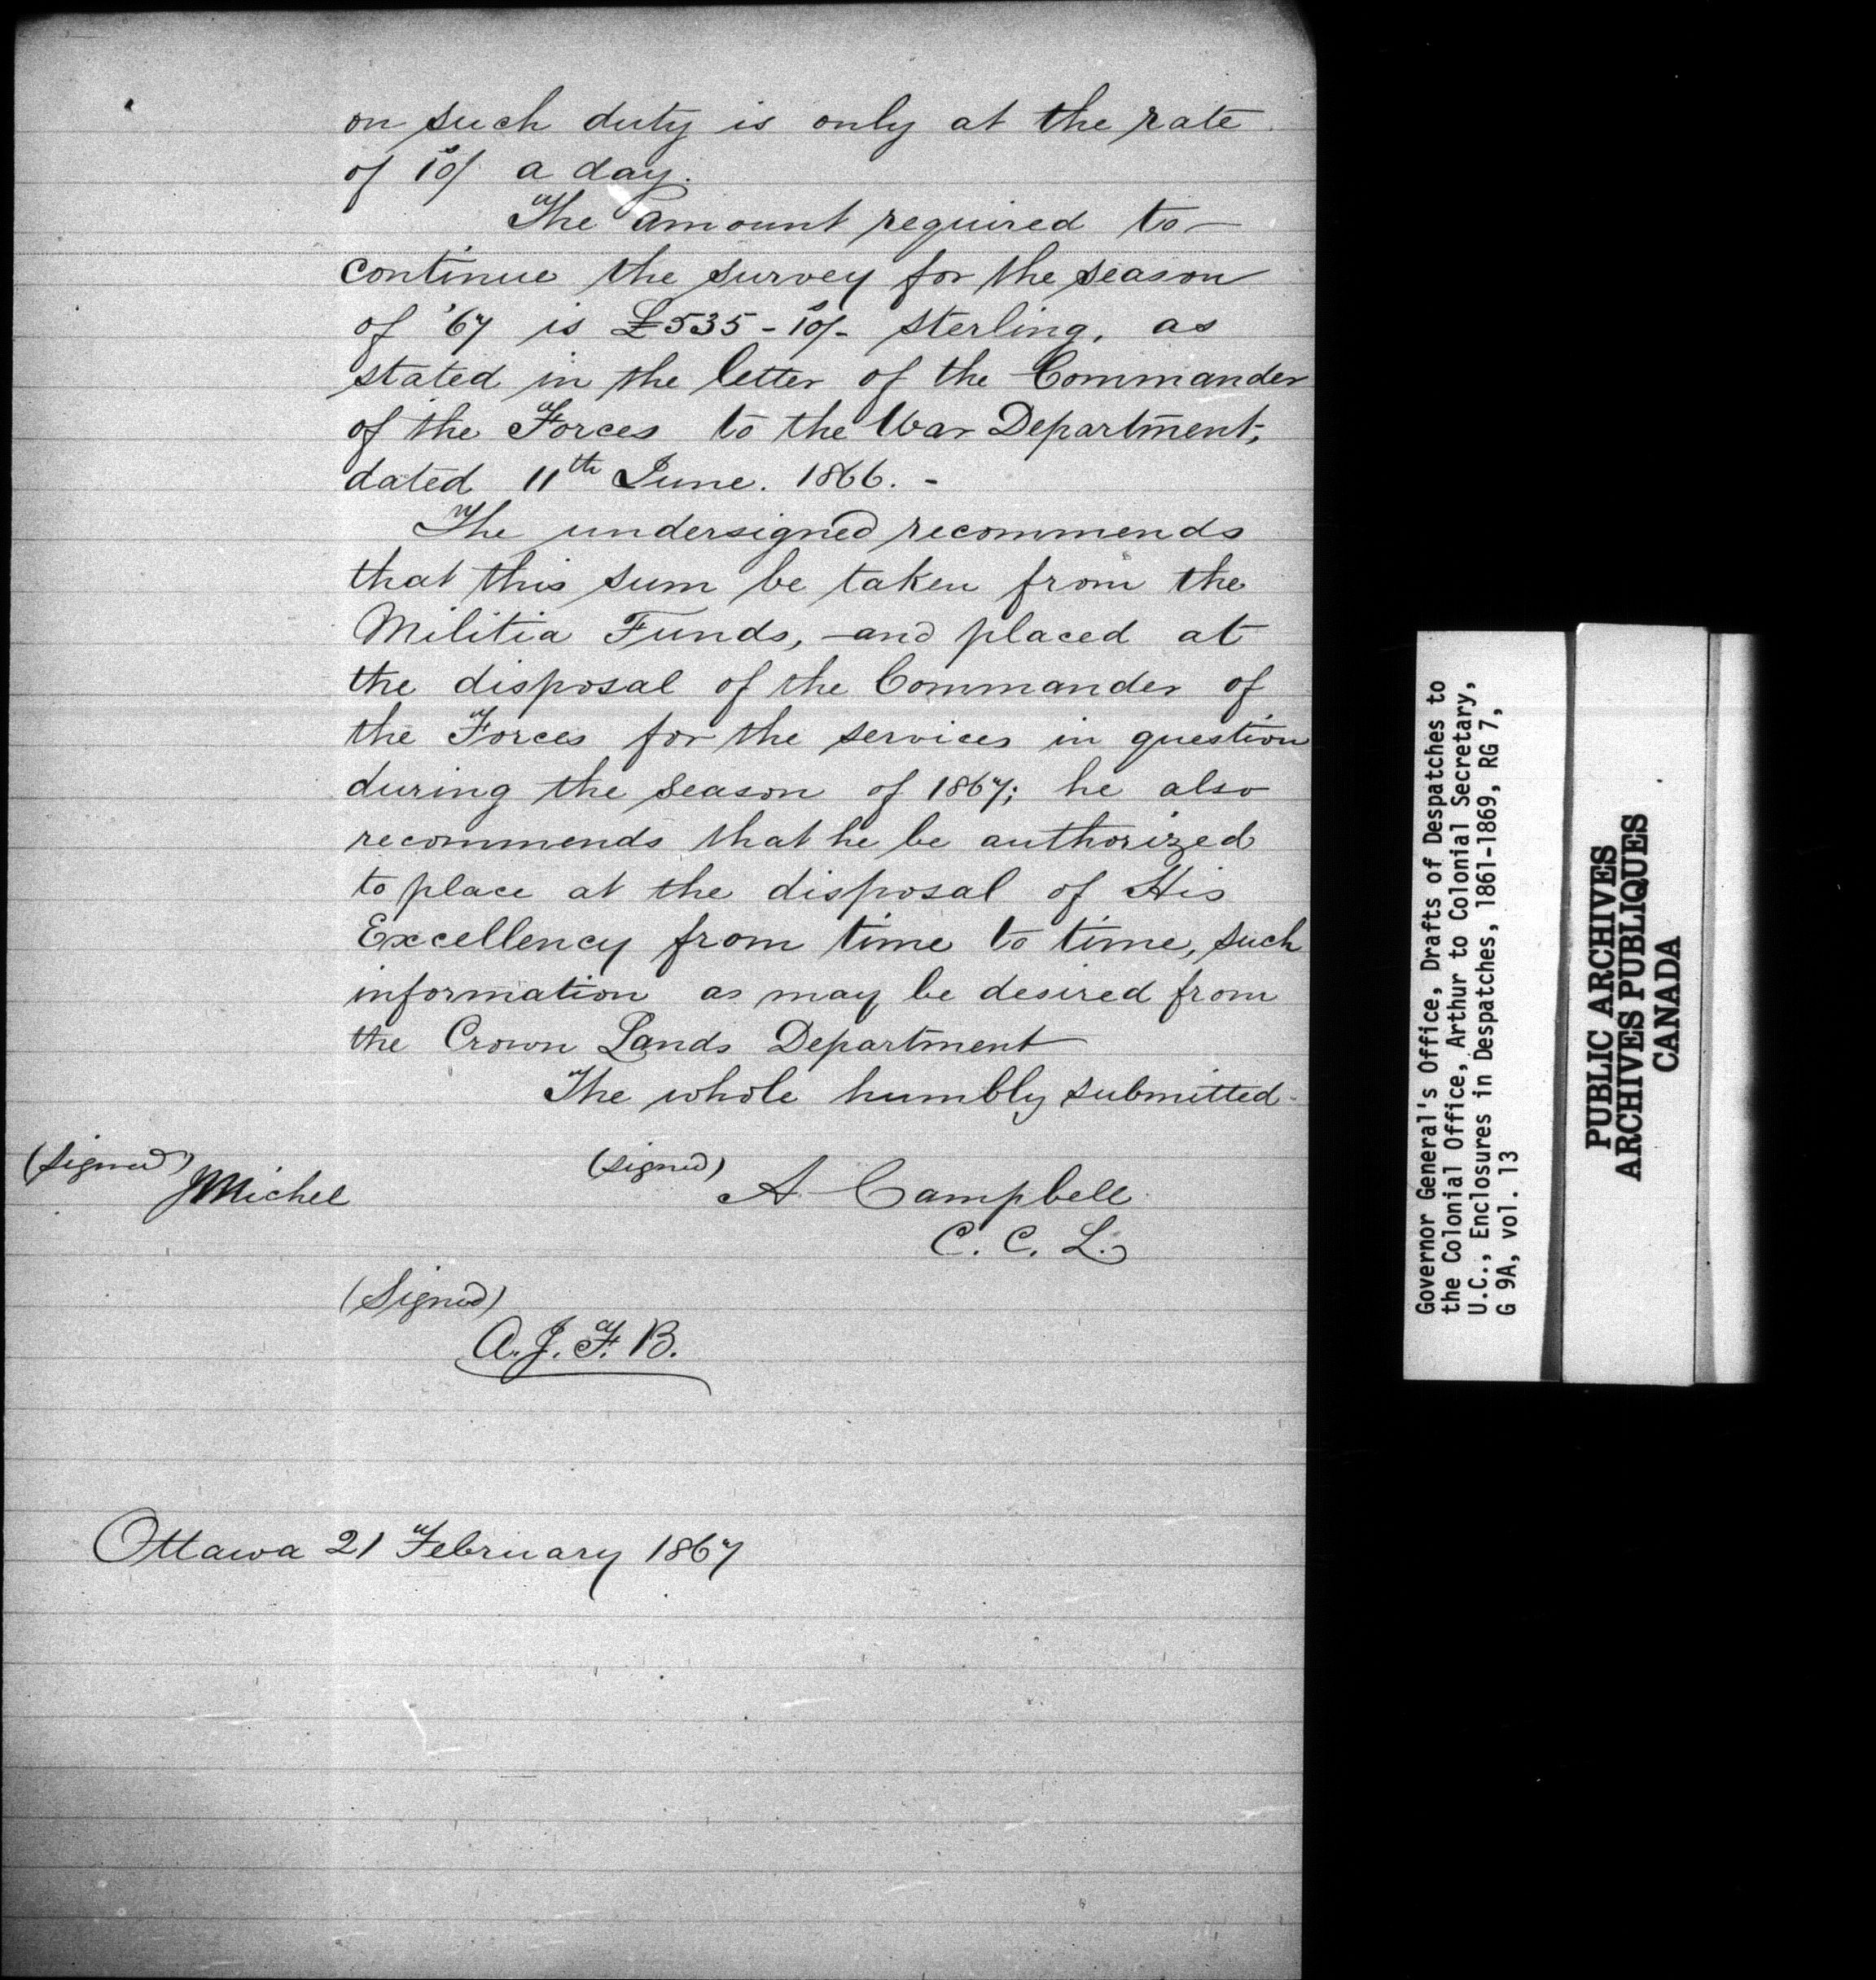 on such duty is only at the rate
of 10/ a day.
The amount required to
continue the survey for the season
of '67 is £535-10/- sterling, as
stated in the letter of the Commander
of the Forces to the War Department,
dated 11th June. 1866. -
The undersigned recommends
that this sum be taken from the
Militia Funds, and placed at
the disposal of the Commander of
the Forces for the services in question
during the season of 1867; he also
recommends that he be authorized
to place at the disposal of His
Excellency from time to time, such
information as may be desired from
the Crown Lands Department
The whole humbly submitted
(signed) JMichel
(signed) A Campbell
C. C. L.
(Signed)
A. J. F. B.
Ottawa 21 February 1867
Governor General's Office, Drafts of Despatches to
the Colonial Office, Arthur to Colonial Secretary,
U.C., Enclosures in Despatches, 1861-1869, RG 7,
G 9A, vol. 13
PUBLIC ARCHIVES
ARCHIVES PUBLIQUES
CANADA